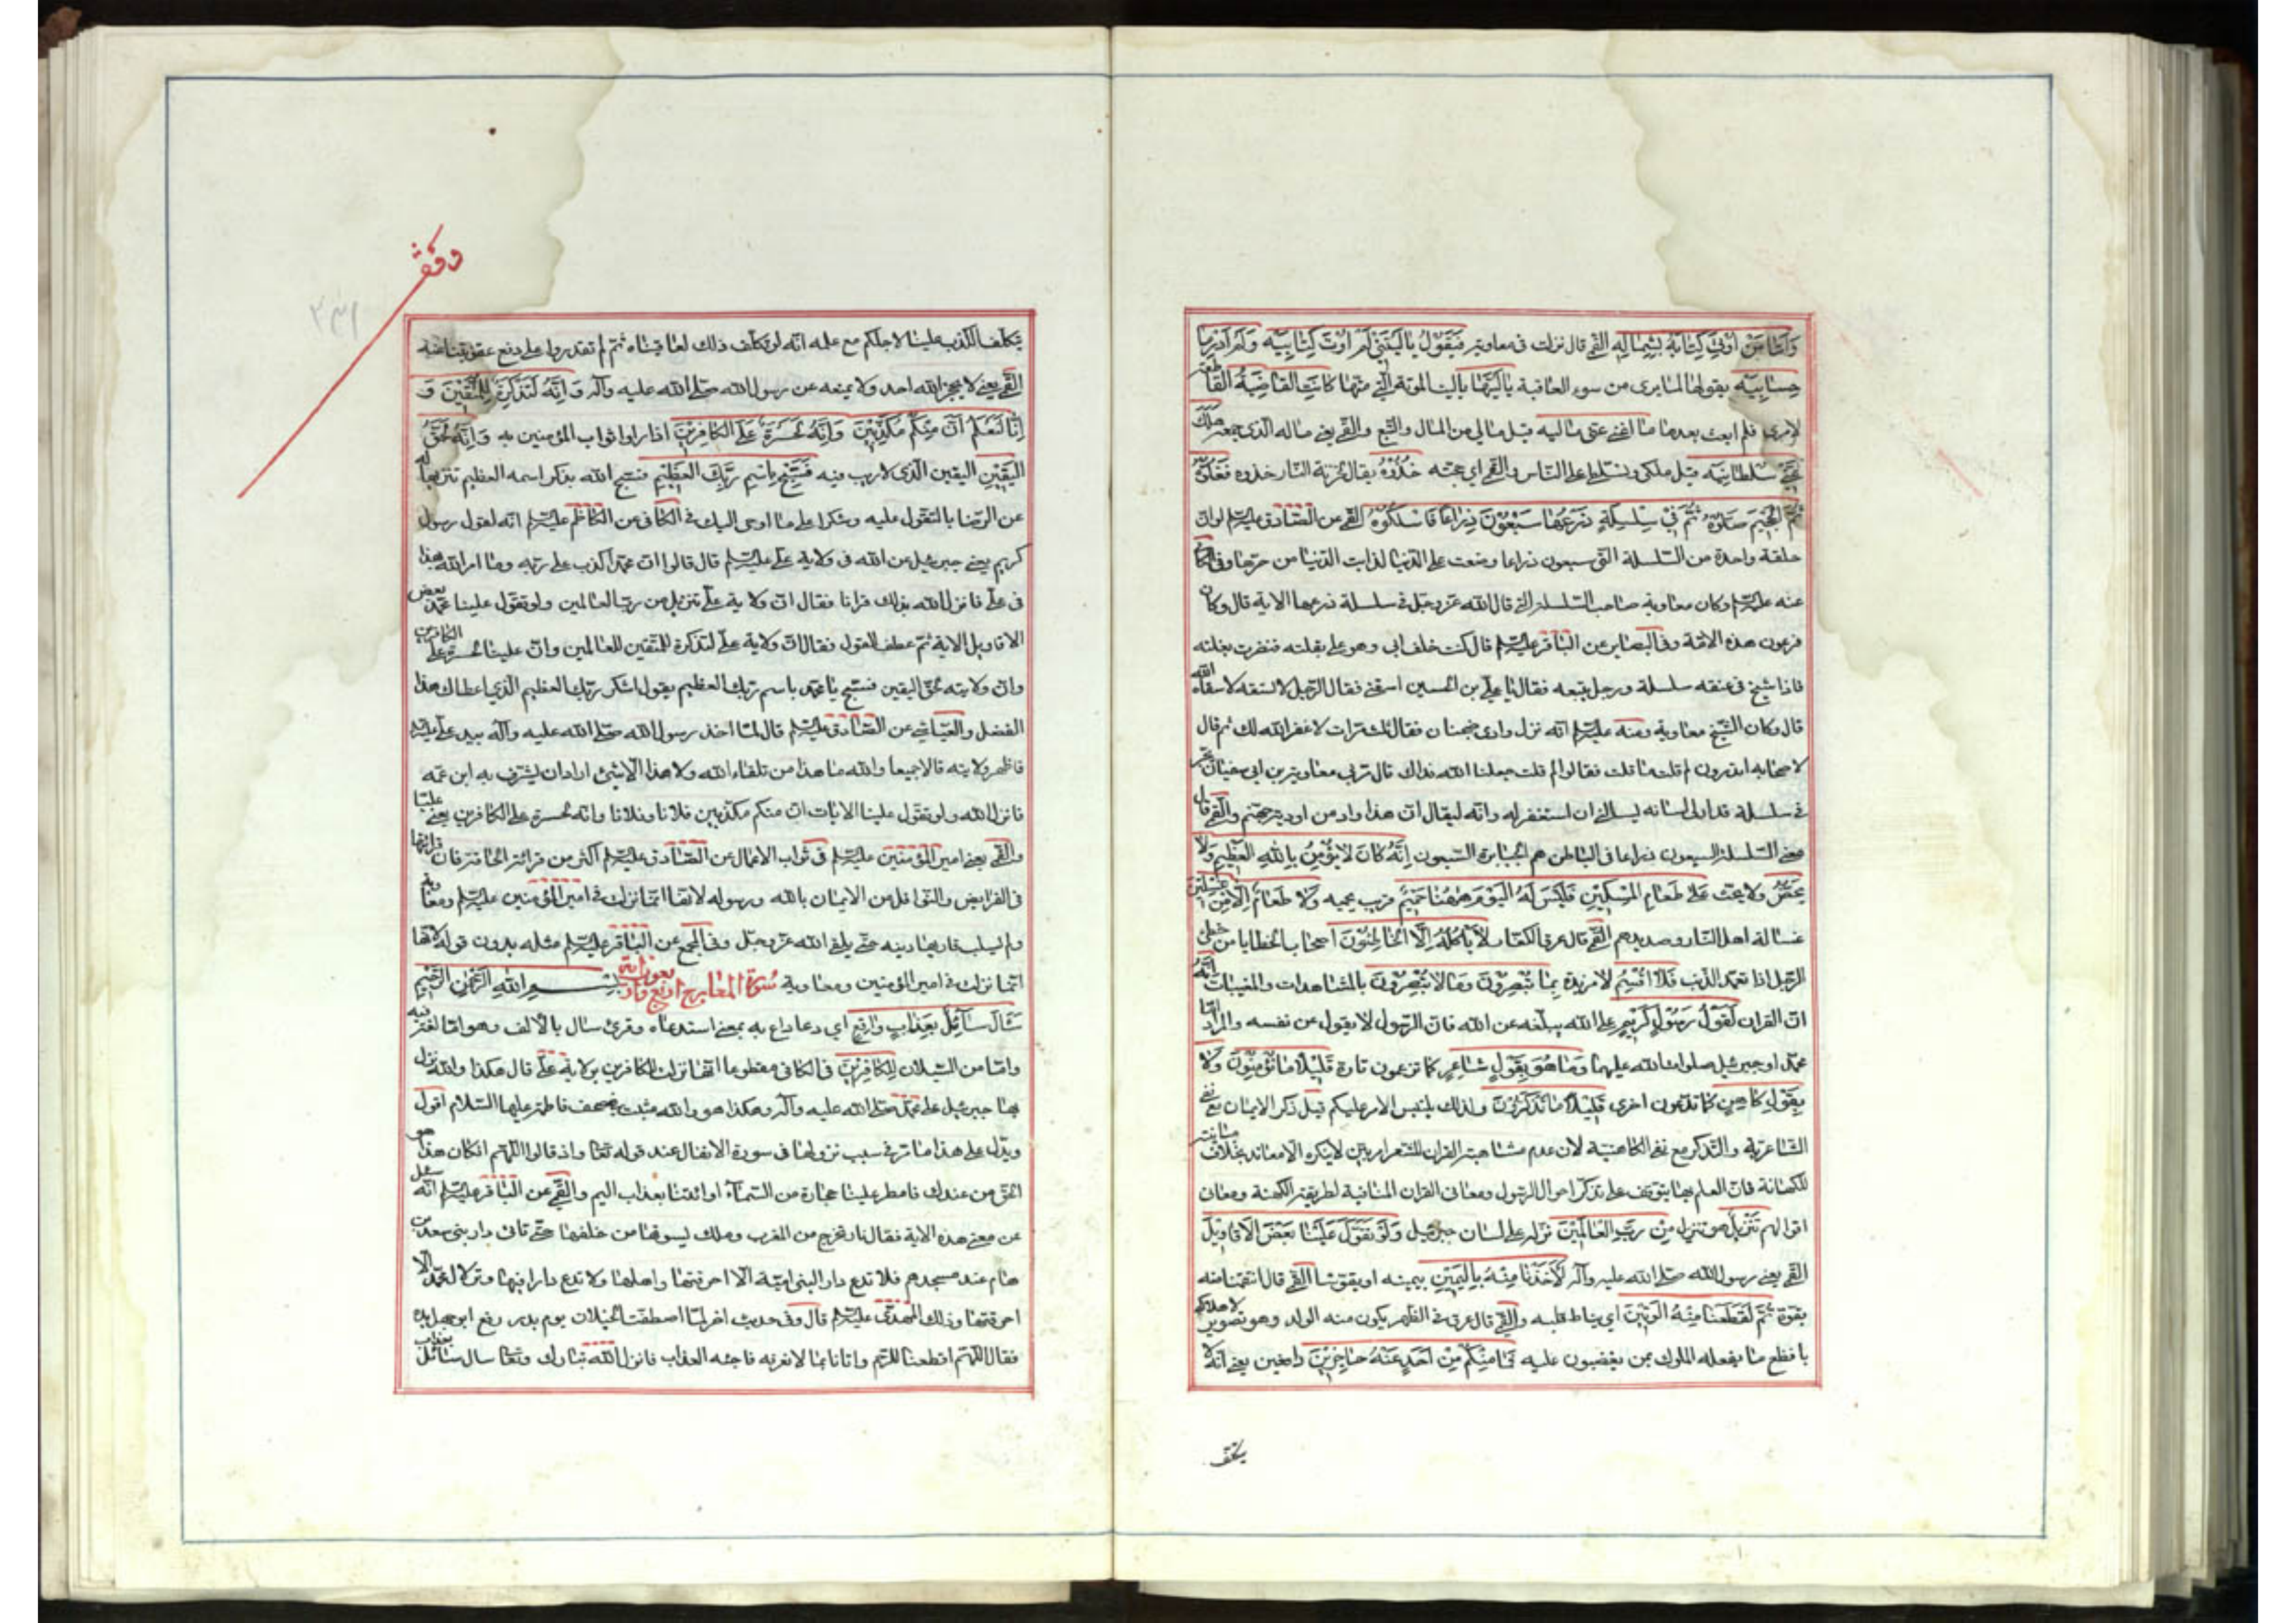 وَاَمّا مَنْ اُوتِيَ كِتابَهُ بِشِمالِهِ القمّي قال نزلت في معاوية فَيَقُولُ يا لَيْتَني لَمْ اُوتَ كِتابِيَهْ وَلَمْ اَدْرِ ما
حِسابِيَهْ يقولها لما يرى من سوء العاقبة يا لَيْتَها يا ليت الموتة الّتي متّها كانَتِ القاضِيَةَ القاطعة
لامري فلم ابعث بعدها ما اَغْنى عَنّي مالِيَهْ قيل مالي من المال والتبع والقمّي يعني ماله الّذي جمعه هَلَكَ
عَنّي سُلْطانِيَهْ قيل ملكي وتسلطي على النّاس والقمّي اي حجته خُذُوهُ يقال لخزنة النّار خذوه فَغُلُّوهُ
ثُمَّ الْجَحيمَ صَلُّوهُ ثُمَّ في سِلْسِلَةٍ ذَرْعُها سَبْعُونَ ذِراعًا فَاسْلُكُوهُ القمّي عن الصّادق عليه السلم لو انّ
حلقة واحدة من السّلسلة الّتي سبعون ذراعا وضعت على الدّنيا لذابت الدّنيا من حرّها وفي الكافي
عنه عليه السلم وكان معاوية صاحب السّلسلة الّتي قال الله عزّ وجلّ في سلسلة ذرعها الاية قال وكان
فرعون هذه الامّة وفي البصاير عن الباقر عليه السلم قال كنت خلف ابي وهو على بغلته فنفرت بغلته
فاذا شيخ في عنقه سلسلة ورجل يتبعه فقال يا عليّ بن الحسين اسقني فقال الرّجل لا تسقه لا سقاه الله
قال وكان الشّيخ معاوية ومنه عليه السلم انّه نزل وادي ضجنان فقال ثلث مرّات لا غفر الله لك ثم قال
لاصحابه اتدرون لم قلت ما قلت فقالوا لم قلت جعلنا الله فداك قال مرّ بي معاوية بن ابي سفيان يجرّ
في سلسلة قد ادلى لسانه يسالني ان استغفر له وانّه ليقال انّ هذا واد من اودية جهنّم والقمّي قال
معنى السّلسلة السبعون ذراعا في الباطن هم الجبابرة السّبعون اِنَّهُ كانَ لا يُؤْمِنُ بِاللهِ الْعَظيمِ وَلا
يَحُضُّ ولا يحثّ عَلى طَعامِ الْمِسْكينِ فَلَيْسَ لَهُ الْيَوْمَ ههُنا حَميمٌ قريب يحميه وَلا طَعامٌ اِلّا مِنْ غِسْلينٍ
غسالة اهل النّار وصديدهم القمّي قال عرق الكفّار لا يَأْكُلُهُ اِلّا الْخاطِئُونَ اصحاب الخطايا من خطئ
الرّجل اذا تعمّد الذّنب فَلا اُقْسِمُ لا مزيدة بِما تُبْصِرُونَ وَما لا تُبْصِرُونَ بالمشاهدات والمغيبات اِنَّهُ
انّ القران لَقَوْلُ رَسُولٍ كَريمٍ على الله يبلّغه عن الله فانّ الرّسول لا يقول عن نفسه والمراد امّا
محمّد او جبرئيل صلوات الله عليهما وَما هُوَ بِقَوْلِ شاعِرٍ كما تزعمون تارة قَليلًا ما تُؤْمِنُونَ وَلا
بِقَوْلِ كاهِنٍ كما تدّعون اخرى قَليلًا ما تَذَكَّرُونَ ولذلك يلتبس الامر عليكم قيل ذكر الايمان مع نفي
الشّاعريّة والتّذكر مع نفي الكاهنيّة لان عدم مشابهة القران للشّعر امر بيّن لا ينكره الا معاند بخلاف مباينته
للكهانة فانّ العلم بها يتوقف على تذكر احوال الرّسول ومعاني القران المنافية لطريقة الكهنة ومعاني
اقوالهم تَنْزيلٌ هو تنزيل مِنْ رَبِّ الْعالَمينَ نزله على لسان جبرئيل وَلَوْ تَقَوَّلَ عَلَيْنا بَعْضَ الْاَقاويلِ
القمّي يعني رسول الله صلّى الله عليه وآله لَاَخَذْنا مِنْهُ بِالْيَمينِ بيمينه او بقوّتنا القمّي قال انتقمنا منه
بقوّة ثُمَّ لَقَطَعْنا مِنْهُ الْوَتينَ اي نياط قلبه والقمّي قال عرق في الظهر يكون منه الولد وهو تصوير لاهلاكه
بافظع ما يفعله الملوك بمن يغضبون عليه فَما مِنْكُمْ مِنْ اَحَدٍ عَنْهُ حاجِزينَ دافعين يعني انّه لا
يتكلّف
وقف
يتكلّف الكذب علينا لاجلكم مع علمه انّه لو تكلّف ذلك لعاقبناه ثمّ لم تقدروا على دفع عقوبتنا عنه
القمّي يعني لا يحجز الله احد ولا يمنعه عن رسول الله صلّى الله عليه وآله وَاِنَّهُ لَتَذْكِرَةٌ لِلْمُتَّقينَ وَ
اِنّا لَنَعْلَمُ اَنَّ مِنْكُمْ مُكَذِّبينَ وَاِنَّهُ لَحَسْرَةٌ عَلَى الْكافِرينَ اذا راوا ثواب المؤمنين به وَاِنَّهُ لَحَقُّ
الْيَقينِ اليقين الّذي لا ريب فيه فَسَبِّحْ بِاسْمِ رَبِّكَ الْعَظيمِ فسبّح الله بذكر اسمه العظيم تنزيها له
عن الرّضا بالتقوّل عليه وشكرا على ما اوحى اليك في الكافي عن الكاظم عليه السلم انّه لقول رسول
كريم يعني جبرئيل عن الله في ولاية عليّ عليه السلم قال قالوا انّ محمّدا كذب على ربّه وما امر الله بهذا
في عليّ فانزل الله بذلك قرانا فقال انّ ولاية عليّ تنزيل من ربّ العالمين ولو تقوّل علينا محمّد بعض
الاقاويل الاية ثمّ عطف القول فقال انّ ولاية عليّ لتذكرة للمتّقين للعالمين وانّ عليّا لحسرة على الكافرين
وانّ ولايته لحقّ اليقين فسبّح يا محمّد باسم ربّك العظيم يقول اشكر ربّك العظيم الّذي اعطاك هذا
الفضل والعيّاشي عن الصّادق عليه السلم قال لمّا اخذ رسول الله صلّى الله عليه وآله بيد عليّ عليه السلم
فاظهر ولايته قالا جميعا والله ما هذا من تلقاء الله ولا هذا الّا شئ اراد ان يشرّف به ابن عمّه
فانزل الله ولو تقوّل علينا الايات انّ منكم مكذّبين فلانا وفلانا وانّه لحسرة على الكافرين يعني عليّا
والقمّي يعني امير المؤمنين عليه السلم في ثواب الاعمال عن الصّادق عليه السلم اكثروا من قرائة الحاقة فان قرائتها
في الفرايض والنّوافل من الايمان بالله ورسوله لانها انّما نزلت في امير المؤمنين عليه السلم ومعاوية
ولم يسلب قاريها دينه حتّى يلقى الله عزّ وجلّ وفي المجمع عن الباقر عليه السلم مثله بدون قوله لانّها
انّما نزلت في امير المؤمنين ومعاوية سورة المعارج اربع واربعون اية بِسْمِ اللهِ الرَّحْمنِ الرَّحيمِ
سَاَلَ سائِلٌ بِعَذابٍ واقِعٍ اي دعا داع به بمعنى استدعاه وقرئ سال بالالف وهو امّا لغة فيه
وامّا من السّيلان لِلْكافِرينَ في الكافي مقطوعا انّها نزلت للكافرين بولاية عليّ قال هكذا والله نزل
بها جبرئيل على محمّد صلّى الله عليه وآله وهكذا هو والله مثبت بمصحف فاطمة عليها السّلام اقول
ويدلّ على هذا ما مرّ في سبب نزولها في سورة الانفال عند قوله تعا واذ قالوا اللّهم ان كان هذا هو
الحقّ من عندك فامطر علينا حجارة من السّمآء او ائتنا بعذاب اليم والقمّي عن الباقر عليه السلم انّه سئل
عن معنى هذه الاية فقال نار تخرج من المغرب وملك يسوقها من خلفها حتّى تاتي دار بني سعد بن
همام عند مسجدهم فلا تدع دارا لبني اميّة الّا احرقتها واهلها ولا تدع دارا فيها وتر لال محمّد الّا
احرقتها وذلك المهديّ عليه السلم قال وفي حديث اخر لمّا اصطفّت الخيلان يوم بدر رفع ابو جهل يده
فقال اللّهم اقطعنا للرّحم واتانا بما لا نعرفه فاجئه العذاب فانزل الله تبارك وتعا سال سائل بعذاب